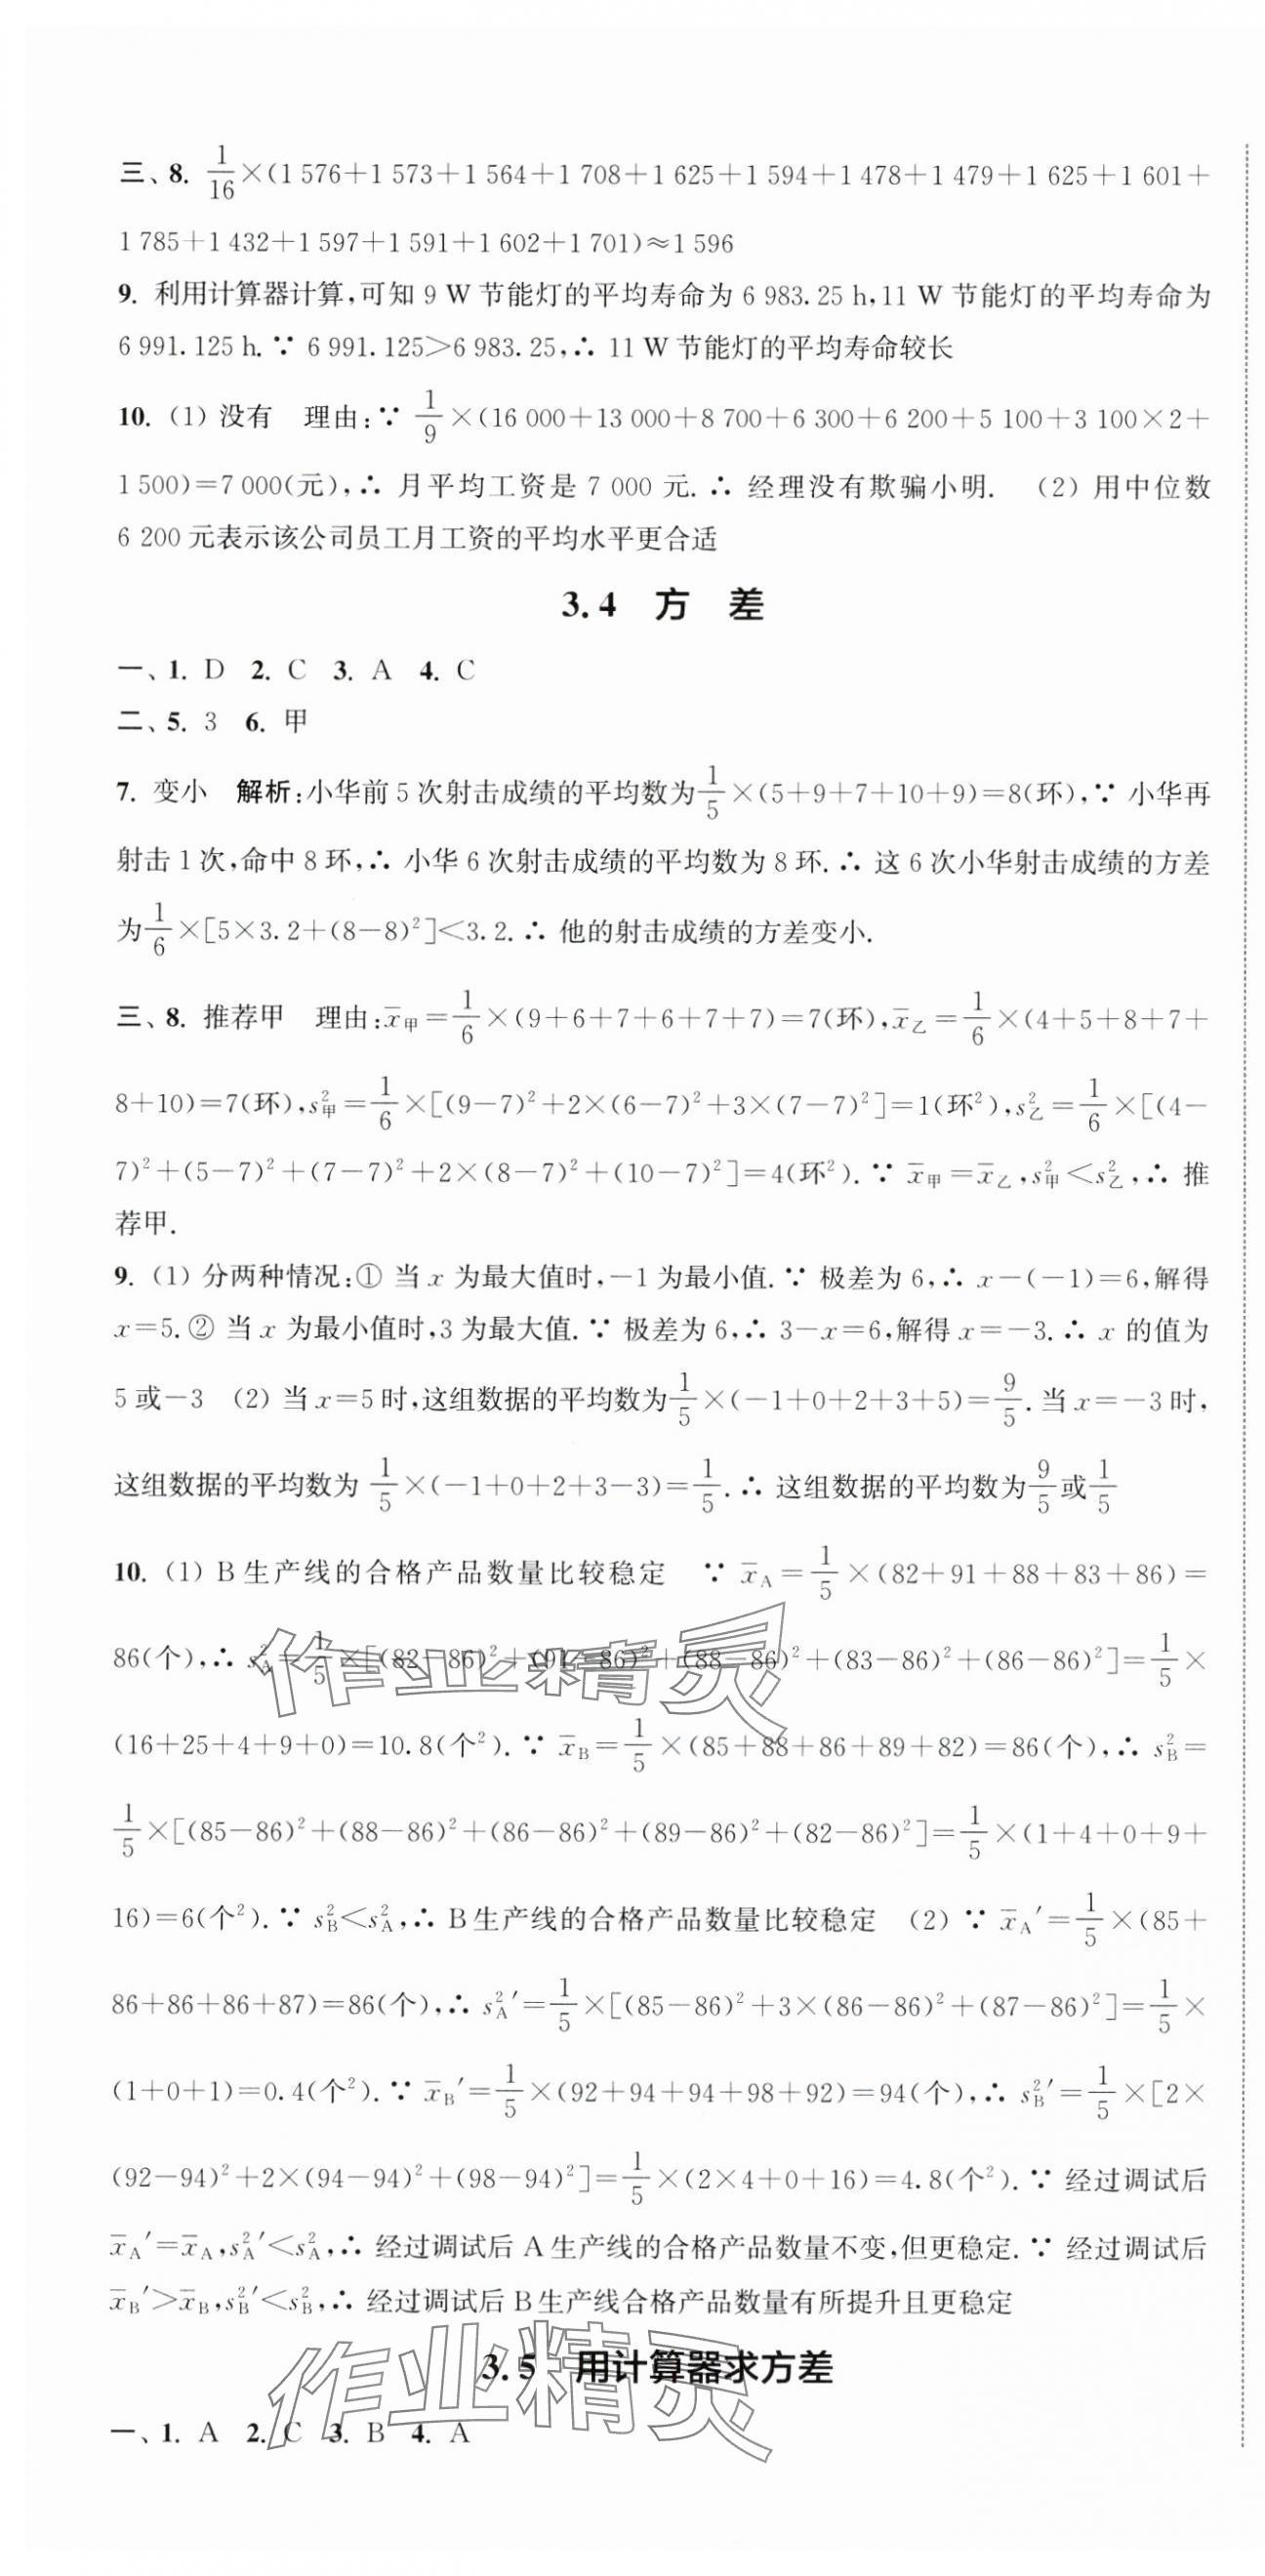 三、8. 1/16×(1 576+1 573+1 564+1 708+1 625+1 594+1 478+1 479+1 625+1 601+
1 785+1 432+1 597+1 591+1 602+1 701)≈1 596
9. 利用计算器计算,可知 9 W 节能灯的平均寿命为 6 983.25 h,11 W 节能灯的平均寿命为
6 991.125 h. ∵ 6 991.125>6 983.25,∴ 11 W 节能灯的平均寿命较长
10. (1) 没有 理由:∵ 1/9×(16 000+13 000+8 700+6 300+6 200+5 100+3 100×2+
1 500)=7 000(元),∴ 月平均工资是 7 000 元. ∴ 经理没有欺骗小明. (2) 用中位数
6 200 元表示该公司员工月工资的平均水平更合适
3.4 方 差
一、1. D 2. C 3. A 4. C
二、5. 3 6. 甲
7. 变小 解析:小华前 5 次射击成绩的平均数为1/5×(5+9+7+10+9)=8(环),∵ 小华再
射击 1 次,命中 8 环,∴ 小华 6 次射击成绩的平均数为 8 环. ∴ 这 6 次小华射击成绩的方差
为1/6×[5×3.2+(8-8)²]<3.2. ∴ 他的射击成绩的方差变小.
三、8. 推荐甲 理由:x̄甲=1/6×(9+6+7+6+7+7)=7(环),x̄乙=1/6×(4+5+8+7+
8+10)=7(环),s²甲=1/6×[(9-7)²+2×(6-7)²+3×(7-7)²]=1(环²),s²乙=1/6×[(4-
7)²+(5-7)²+(7-7)²+2×(8-7)²+(10-7)²]=4(环²). ∵ x̄甲=x̄乙,s²甲<s²乙,∴ 推
荐甲.
9. (1) 分两种情况:① 当 x 为最大值时,-1 为最小值. ∵ 极差为 6,∴ x-(-1)=6,解得
x=5. ② 当 x 为最小值时,3 为最大值. ∵ 极差为 6,∴ 3-x=6,解得 x=-3. ∴ x 的值为
5 或-3 (2) 当 x=5 时,这组数据的平均数为1/5×(-1+0+2+3+5)=9/5. 当 x=-3 时,
这组数据的平均数为 1/5×(-1+0+2+3-3)=1/5. ∴ 这组数据的平均数为9/5或1/5
10. (1) B 生产线的合格产品数量比较稳定 ∵ x̄A=1/5×(82+91+88+83+86)=
86(个),∴ s²A=1/5×[(82-86)²+(91-86)²+(88-86)²+(83-86)²+(86-86)²]=1/5×
(16+25+4+9+0)=10.8(个²). ∵ x̄B=1/5×(85+88+86+89+82)=86(个),∴ s²B=
1/5×[(85-86)²+(88-86)²+(86-86)²+(89-86)²+(82-86)²]=1/5×(1+4+0+9+
16)=6(个²). ∵ s²B<s²A,∴ B 生产线的合格产品数量比较稳定 (2) ∵ x̄A′=1/5×(85+
86+86+86+87)=86(个),∴ s²A′=1/5×[(85-86)²+3×(86-86)²+(87-86)²]=1/5×
(1+0+1)=0.4(个²). ∵ x̄B′=1/5×(92+94+94+98+92)=94(个),∴ s²B′=1/5×[2×
(92-94)²+2×(94-94)²+(98-94)²]=1/5×(2×4+0+16)=4.8(个²). ∵ 经过调试后
x̄A′=x̄A,s²A′<s²A,∴ 经过调试后 A 生产线的合格产品数量不变,但更稳定. ∵ 经过调试后
x̄B′>x̄B,s²B′<s²B,∴ 经过调试后 B 生产线合格产品数量有所提升且更稳定
3.5 用计算器求方差
一、1. A 2. C 3. B 4. A
作业精灵
作业精灵